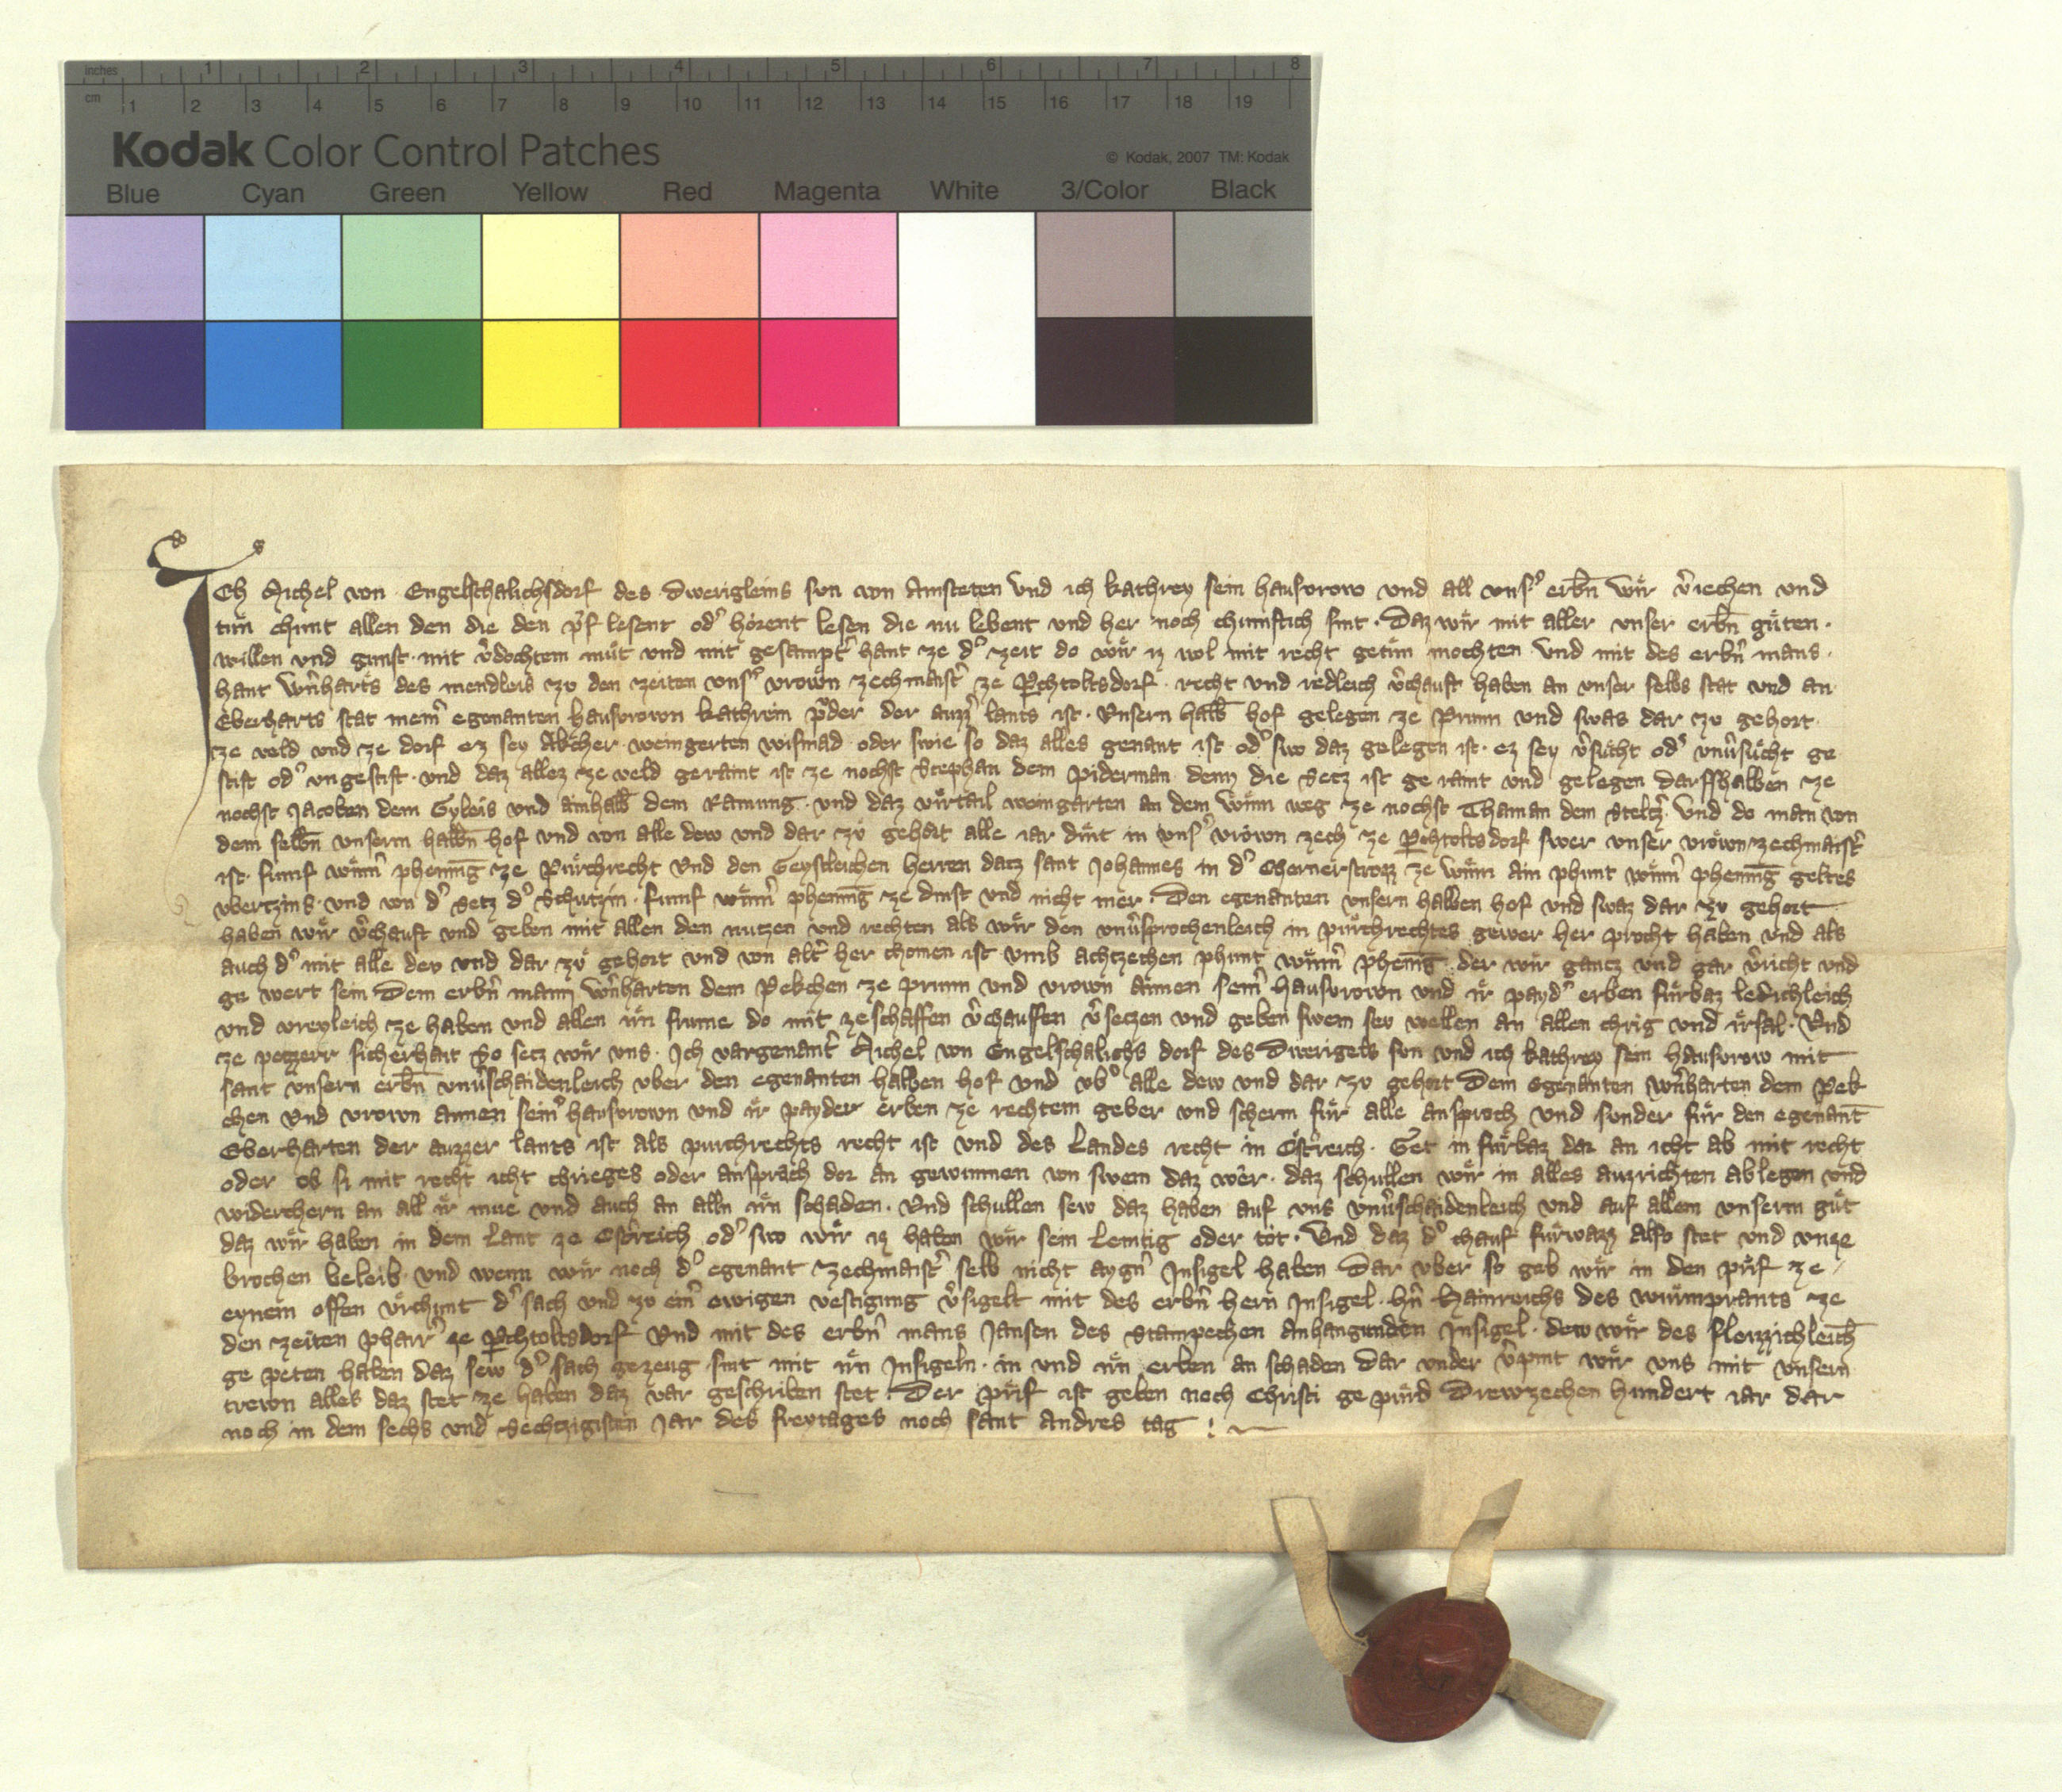 inches 1 2 3 4 5 6 7 8
cm 1 2 3 4 5 6 7 8 9 10 11 12 13 14 15 16 17 18 19
Kodak Color Control Patches © Kodak, 2007 TM: Kodak
Blue Cyan Green Yellow Red Magenta White 3/Color Black
Ich Michel von Engelschalichsdorf des Dwerigleins sun von Amsteten Und ich kathrey sein hausvrow und all vnsʼ erbn̄ wir vʼiechen und
tun chunt allen den die den pͥf lesent odʼ hörent lesen die nu lebent und her noch chumftich sint · Daz wir mit aller unser erbn̄ güten ·
willen und gunst · mit vʼdochtem müt und mit gesamptʼ hant ze dʼ zeit do wir iz wol mit recht getun mochten Und mit des erbnʼ mans ·
hant wʼnharts des mendleis zu den zeiten unsʼ vrown zechmaistʼ ze Pʼchtoltsdorf · recht und redleich vʼchauft haben an unser selbs stat und an
Eberharts stat meinʼ egenanten hausvrown kathrein prͦder der auzzʼ lants ist · Unsern halb̄ hof gelegen ze Prunn und swas dar zu gehort ·
ze veld und ze dorf ez sey Äkcher weingerten wismad oder swie so daz alles genant ist odʼ swo daz gelegen ist · ez sey vʼsücht odʼ unvʼsücht ge
stift odʼ ungestift · und daz allez ze veld geraint ist ze nochst Stephan dem piderman denn die Setz ist ge raint und gelegen darffhalben ze
nochst Jacoben dem Gyleis und ainhalb̄ dem Ramung · und daz virtail weingarten an dem winn weg ze nochst Thaman dem Steltzʼ · Und do man von
dem selbn̄ unserm halbn̄ hof und von alle dew und dar zu gehört alle iar dint in unsʼ vrown zech ze Pʼchtoltsdorf swer unser vrown zechmaistʼ
ist · fumf winnʼ pheninḡ ze Purchrecht Und den Geystleichen herren datz sant Johannes in dʼ Chernerstrazz ze winn ain phunt winnʼ pheninḡ geltes
ubertzins · und von dʼ Setz dʼ Schutzin · fumf winnʼ pheninḡ ze dinst und nicht mer · Den egenanten unsern halben hof und swaz dar zu gehort
haben wir vʼchauft und geben mit allen den nutzen und rechten als wir den unvʼsprochenleich in purchrechtes gewer her procht haben und als
auch dʼ mit alle dew und dar zu gehort und von altʼ her chomen ist umb achtzechen phunt winnʼ pheninḡ der wir gantz und gar vʼricht und
ge wert sein Dem erbnʼ mann wʼnharten dem Pekchen ze prunn und vrown annen seinʼ hausvrown und ir paydʼ erben fürbaz ledichleich
und vreyleich ze haben und allen irn frume do mit ze schaffen vʼchauffen vʼsetzen und geben swem sew wellen an allen chrig und irsal · Und
ze pezzerr sicherhait So setz wir uns · Ich vargenantʼ Michel von Engelschalichs dorf des Dwerigels sun und ich kathrey sein hausvrow mit
sant unsern erbn̄ unvʼschaidenleich uber den egenanten halben hof und ubʼ alle dew und dar zu gehort Dem egenanten wʼnharten dem Pek
chen und vrown annen seinʼ hausvrown und ir payder erben ze rechtem geber und scherm für alle ansproch und sunder für den egenant̄
Eberharten der auzzer lants ist als purchrechts recht ist und des Landes recht in Östʼreich · Get in fürbaz dar an icht ab mit recht
oder ob si mit recht icht chrieges oder ansprach dor an gewinnen von swem daz wer · daz schullen wir in alles auzrichten ablegen und
widerchern an all ir mue und auch an alln irn schaden · Und schullen sew daz haben auf uns unvʼschaidenleich und auf allem unserm güt
daz wir haben in dem Lant ze Ostʼreich odʼ swo wir iz haben wir sein lemtig oder tot · Und daz dʼ chauf fürwazz also stet und unze
brochen beleib · und wenn wir noch dʼ egenant zechmaistʼ selb nicht aygnʼ Insigel haben Dar uber so geb wir in den prif ze
eynem offen urchunt dʼ sach und zu einʼ ewigen vestigung vʼsigelt mit des erbnʼ hern Insigel · hʼn Hainreichs des wurmprants ze
den zeiten pharrʼ ze Pʼchtoltsdorf Und mit des erbnʼ mans Jansen des Stampechen anhangunden Insigel · dew wir des flezzichleich
ge peten haben daz sew dʼ sach gezeug sint mit irn Insigeln · in und irn erben an schaden Dar under vʼpint wir uns mit unsern
trewn alles daz stet ze haben daz var geschriben stet · Der prif ist geben noch Christi ge purd Drewzechen hundert iar dar
noch in dem sechs und Sechtzigisten Jar des freytages noch sant andres tag